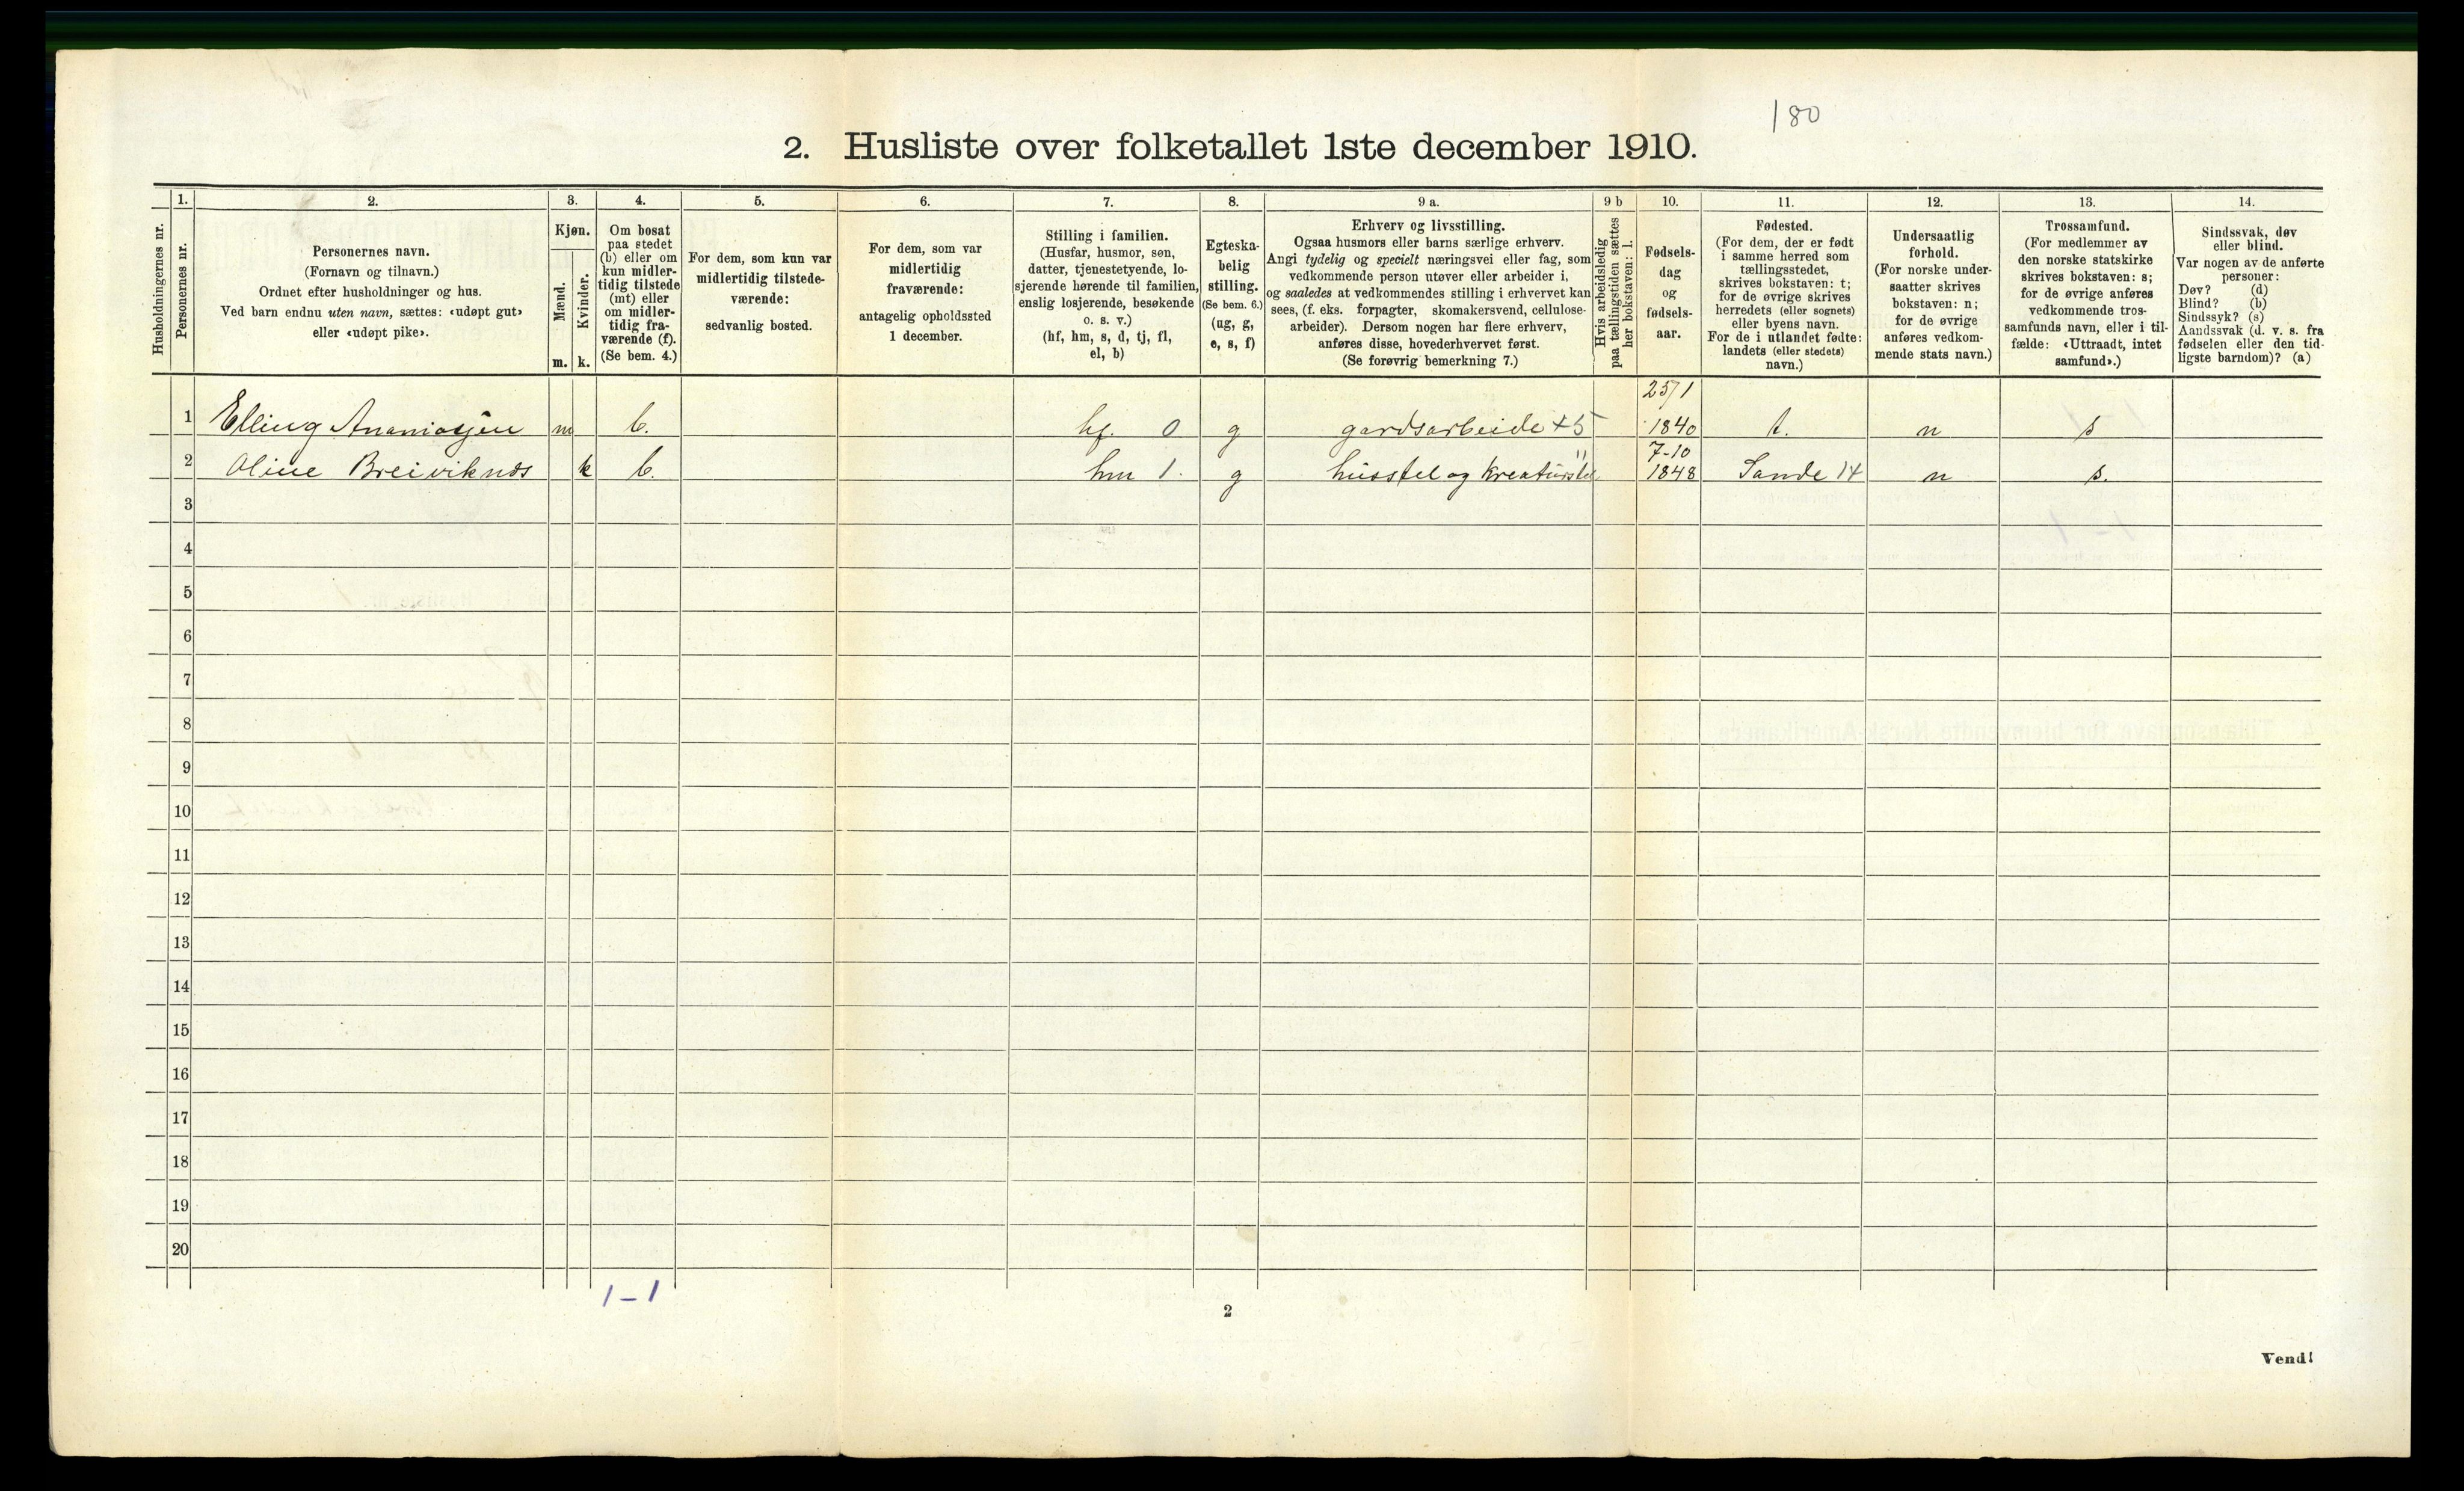 180
2. Husliste over folketallet 1ste december 1910.
Husholdningernes nr.
1.
Personernes nr.
2.
Personernes navn.
(Fornavn og tilnavn.)
Ordnet efter husholdninger og hus.
Ved barn endnu uten navn, sættes: «udøpt gut»
eller «udøpt pike».
3.
Kjøn.
Mænd.
Kvinder.
m. k.
4.
Om bosat
paa stedet
(b) eller om
kun midler-
tidig tilstede
(mt) eller
om midler-
tidig fra-
værende (f).
(Se bem. 4.)
5.
For dem, som kun var
midlertidig tilstede-
værende:
sedvanlig bosted.
6.
For dem, som var
midlertidig
fraværende:
antagelig opholdssted
1 december.
7.
Stilling i familien.
(Husfar, husmor, søn,
datter, tjenestetyende, lo-
sjerende hørende til familien,
enslig losjerende, besøkende
o. s. v.)
(hf, hm, s, d, tj, fl,
el, b)
8.
Egteska-
belig
stilling.
(Se bem. 6.)
(ug, g,
e, s, f)
9 a.
Erhverv og livsstilling.
Ogsaa husmors eller barns særlige erhverv.
Angi tydelig og specielt næringsvei eller fag, som
vedkommende person utøver eller arbeider i,
og saaledes at vedkommendes stilling i erhvervet kan
sees, (f. eks. forpagter, skomakersvend, cellulose-
arbeider). Dersom nogen har flere erhverv,
anføres disse, hovederhvervet først.
(Se forøvrig bemerkning 7.)
9 b
Hvis arbeidsledig
paa tællingstiden sættes
her bokstaven: l.
10.
Fødsels-
dag
og
fødsels-
aar.
11.
Fødested.
(For dem, der er født
i samme herred som
tællingsstedet,
skrives bokstaven: t;
for de øvrige skrives
herredets (eller sognets)
eller byens navn.
For de i utlandet fødte:
landets (eller stedets)
navn.)
12.
Undersaatlig
forhold.
(For norske under-
saatter skrives
bokstaven: n;
for de øvrige
anføres vedkom-
mende stats navn.)
13.
Trossamfund.
(For medlemmer av
den norske statskirke
skrives bokstaven: s;
for de øvrige anføres
vedkommende tros-
samfunds navn, eller i til-
fælde: «Uttraadt, intet
samfund».)
14.
Sindssvak, døv
eller blind.
Var nogen av de anførte
personer:
Døv? (d)
Blind? (b)
Sindssyk? (s)
Aandssvak (d. v. s. fra
fødselen eller den tid-
ligste barndom)? (a)
25/1
1 Elling Ananiasjen m b. hf. 0 g gardsarbeide +5 1840 t. n s
7-10
2 Oline Breiviknæs k b. hm 1. g husstel og kreaturstel 1848 Sande 14 n s.
3
4
5
6
7
8
9
10
11
12
13
14
15
16
17
18
19
20
1-1
2
Vend!